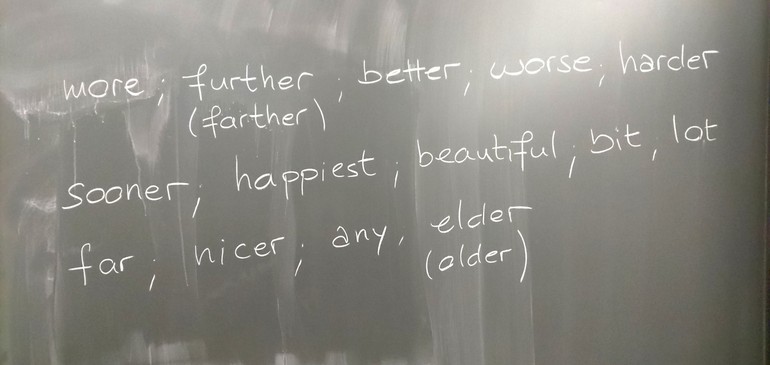 more; further; better; worse; harder
(farther)
sooner; happiest; beautiful; bit, lot
far; nicer; any, elder
(older)